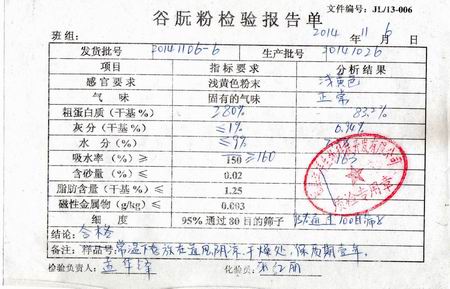 文件编号：JL/13-006
谷朊粉检验报告单
班组： 2014 年 11 月 6 日
发货批号 20141106-6 生产批号 20141026
项目 指标要求 分析结果
感官要求 浅黄色粉末 浅黄色
气味 固有的气味 正常
粗蛋白质（干基%） ≥80% 83.2%
灰分（干基%） ≤1%
水分（%） ≤9%
吸水率（%）≥ 150 ≥160 163
含砂量（%）≤ 0.02
脂肪含量（干基%）≤ 1.25
磁性金属物（g/kg）≤ 0.003
细度 95%通过80目的筛子
质检专用章
结论： 合格
备注：样品号：常温下存放在通风阴凉、干燥处，保质期壹年。
检验负责人： 化验员：